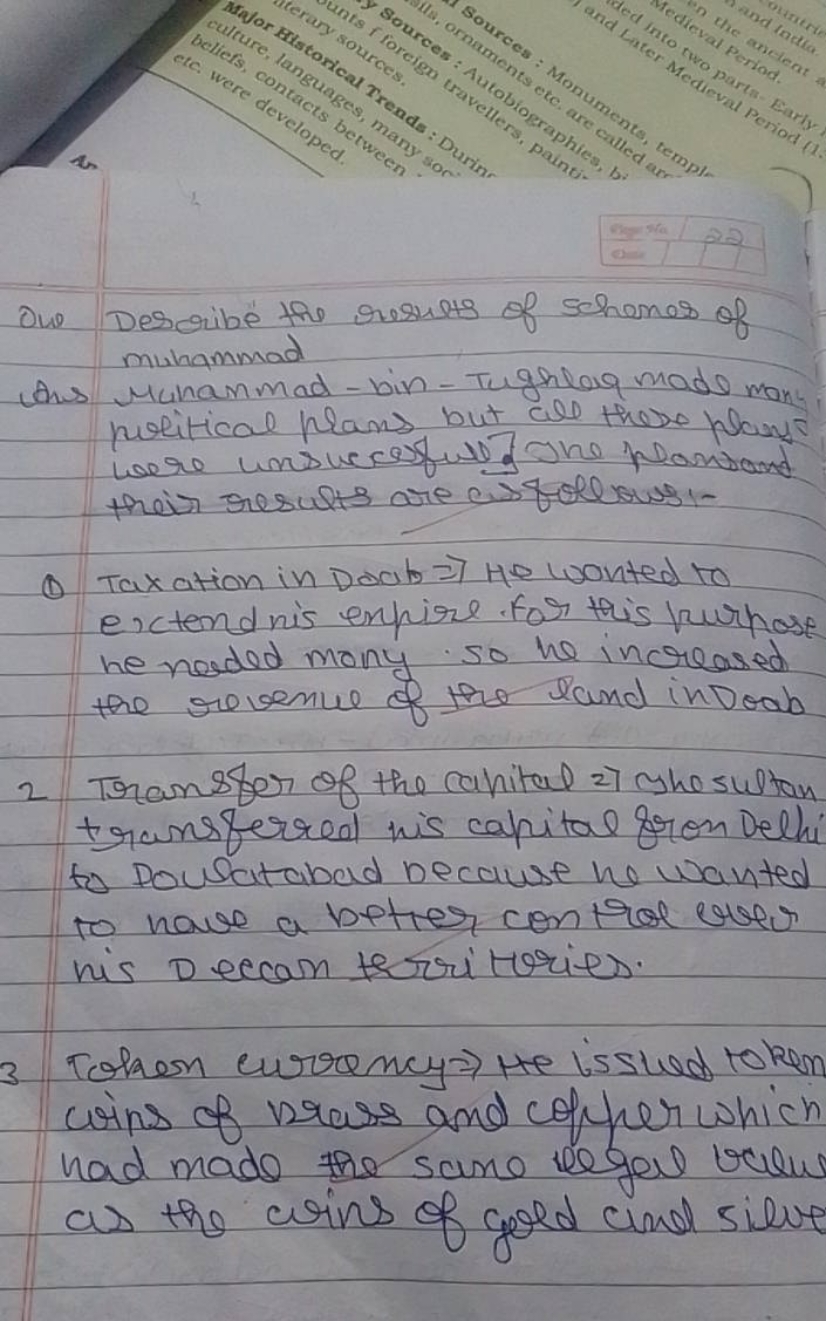 Sources : Monuments, temple
y Sources : Autobiographies, bi
ils, ornaments etc. are called arc
ounts f foreign travellers, painti
iterary sources.
Major Historical Trends : During
culture, languages, many soci
beliefs, contacts between
etc. were developed.
countrie
n and India
en the ancient a
Medieval Period.
ded into two parts- Early
and Later Medieval Period (1
An
Page No. 22
Date
Que Describe the results of schemes of
muhammad
Ans Muhammad-bin-Tughlaq made many
political plans but all these plans
were unsuccessfull The plans and
their results are as follows:-
① Taxation in Doab => He wanted to
extend his empire. For this purpose
he needed money. so he increased
the revenue of the land in Doab
2 Transfer of the capital => The sultan
transferred his capital from Delhi
to Doulatabad because he wanted
to have a better control over
his Deccan territories.
3 Token currency => He issued token
coins of brass and copper which
had made the same legal value
as the coins of gold and silve